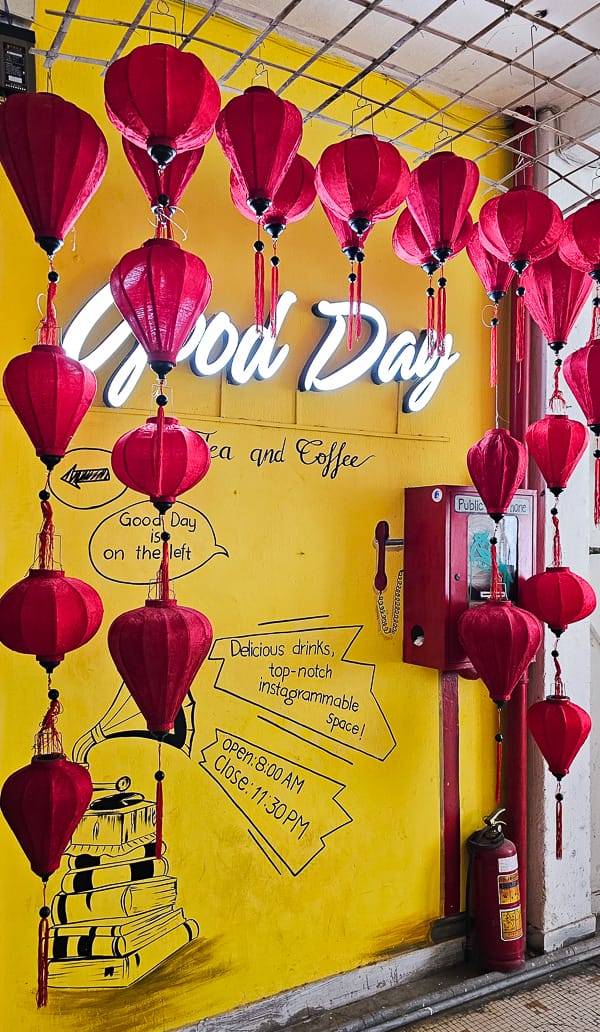 Good Day
Tea and Coffee
Good Day
is
on the left
Public
Delicious drinks,
top-notch
instagrammable
space!
open: 8:00 AM
Close: 11:30 PM